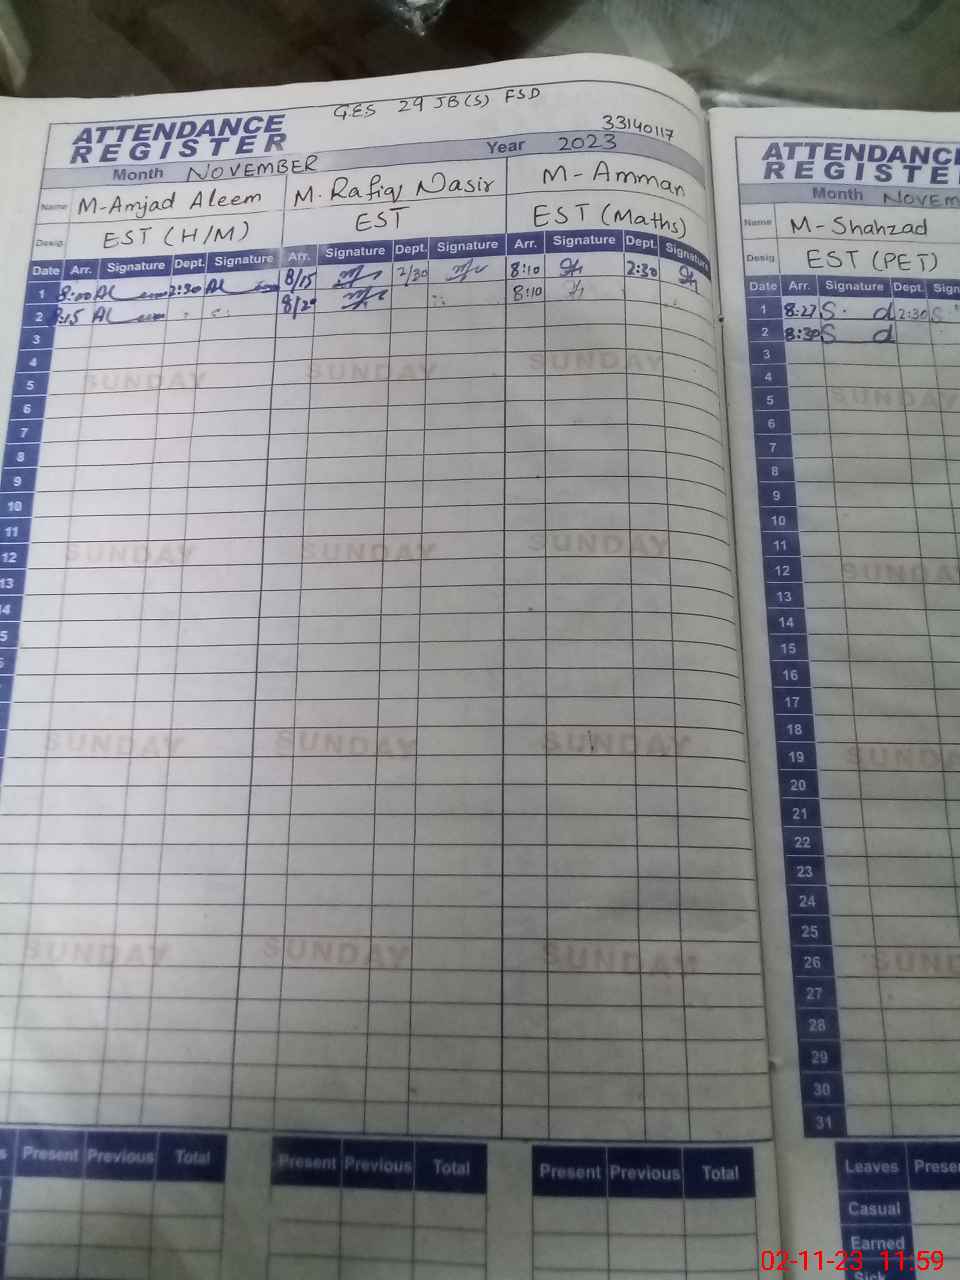 G.E.S 29 JB(S) FSD
33140117
ATTENDANCE
REGISTER
Month NOVEMBER Year 2023
Name M-Amjad Aleem M. Rafiq Nasir M-Amman
Desig. EST (H/M) EST EST (Maths)
Date Arr. Signature Dept. Signature Arr. Signature Dept. Signature Arr. Signature Dept. Signature
1 8:00 2:30 8/15 2/30 8:10 2:30
2 8:15 8:10
3
4
5 SUNDAY SUNDAY SUNDAY
6
7
8
9
10
11
12 SUNDAY SUNDAY SUNDAY
13
SUNDAY SUNDAY SUNDAY
SUNDAY SUNDAY SUNDAY
Present Previous Total Present Previous Total Present Previous Total
ATTENDANC
REGISTE
Month NOVEM
Name M-Shahzad
Desig. EST (PET)
Date Arr. Signature Dept. Sign
1 8:27 2:30
2 8:30
3
4
5 SUNDAY
6
7
8
9
10
11
12 SUNDA
13
14
15
16
17
18
19 SUND
20
21
22
23
24
25
26 SUND
27
28
29
30
31
Leaves Prese
Casual
Earned
Sick
02-11-23 11:59